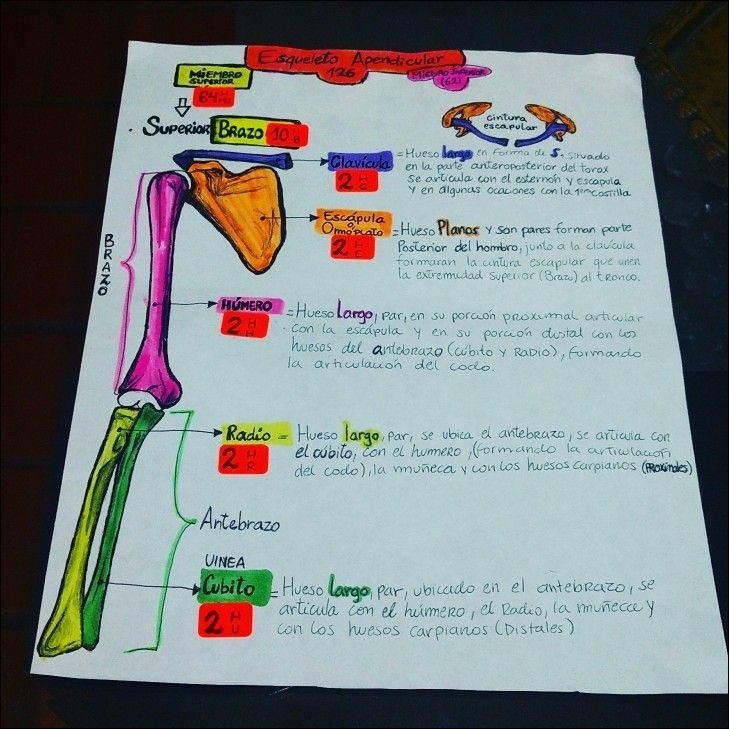 Esqueleto Apendicular
126
MIEMBRO
SUPERIOR
64 H
MIEMBRO INFERIOR
(62)
Superior
BRAZO 10 H
cintura
escapular
BRAZO
Clavícula
2 H
C
= Hueso largo en forma de S, situado
en la parte anteroposterior del torax
se articula con el esternón y escápula
Y en algunas ocaciones con la 1era costilla
Escápula
o
Omoplato
2 H
E
= Hueso Planos y son pares forman parte
Posterior del hombro, junto a la clavícula
formaran la cintura escapular que unen
la extremidad superior (Brazo) al tronco.
HÚMERO
2 H
H
= Hueso Largo, Par, en su porción proximal articular
con la escápula y en su porción distal con los
huesos del antebrazo (cúbito y RADIO), formando
la articulación del codo.
Radio
2 H
R
= Hueso largo, par, se ubica el antebrazo, se articula con
el cúbito, con el humero, (formando la articulación
del codo), la muñeca y con los huesos carpianos (PROXIMALES)
Antebrazo
UINEA
Cubito
2 H
U
= Hueso largo, par, ubicado en el antebrazo, se
articula con el húmero, el Radio, la muñeca y
con los huesos carpianos (Distales)